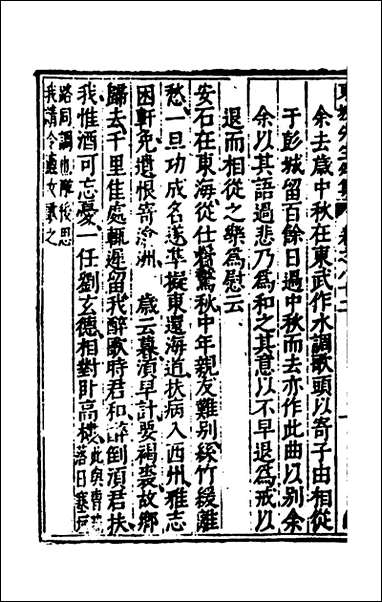 余去歲中秋在東武作水調歌頭以寄子由相從
于彭城留百餘日過中秋而去亦作此曲以別余
余以其語過悲乃為和之其意以不早退為戒以
退而相從之樂為慰云
安石在東海從仕鬢驚秋中年親友難別絲竹緩離
愁一旦功成名遂準擬東還海道扶病入西州雅志
困軒冕遺恨寄滄洲 歲云暮須早計要褐裘故鄉
歸去千里佳處輒遲留我醉歌時君和醉倒須君扶
我惟酒可忘憂一任劉玄德相對臥高樓
此與曹
落日塞
路同調也思
我請令女歌之